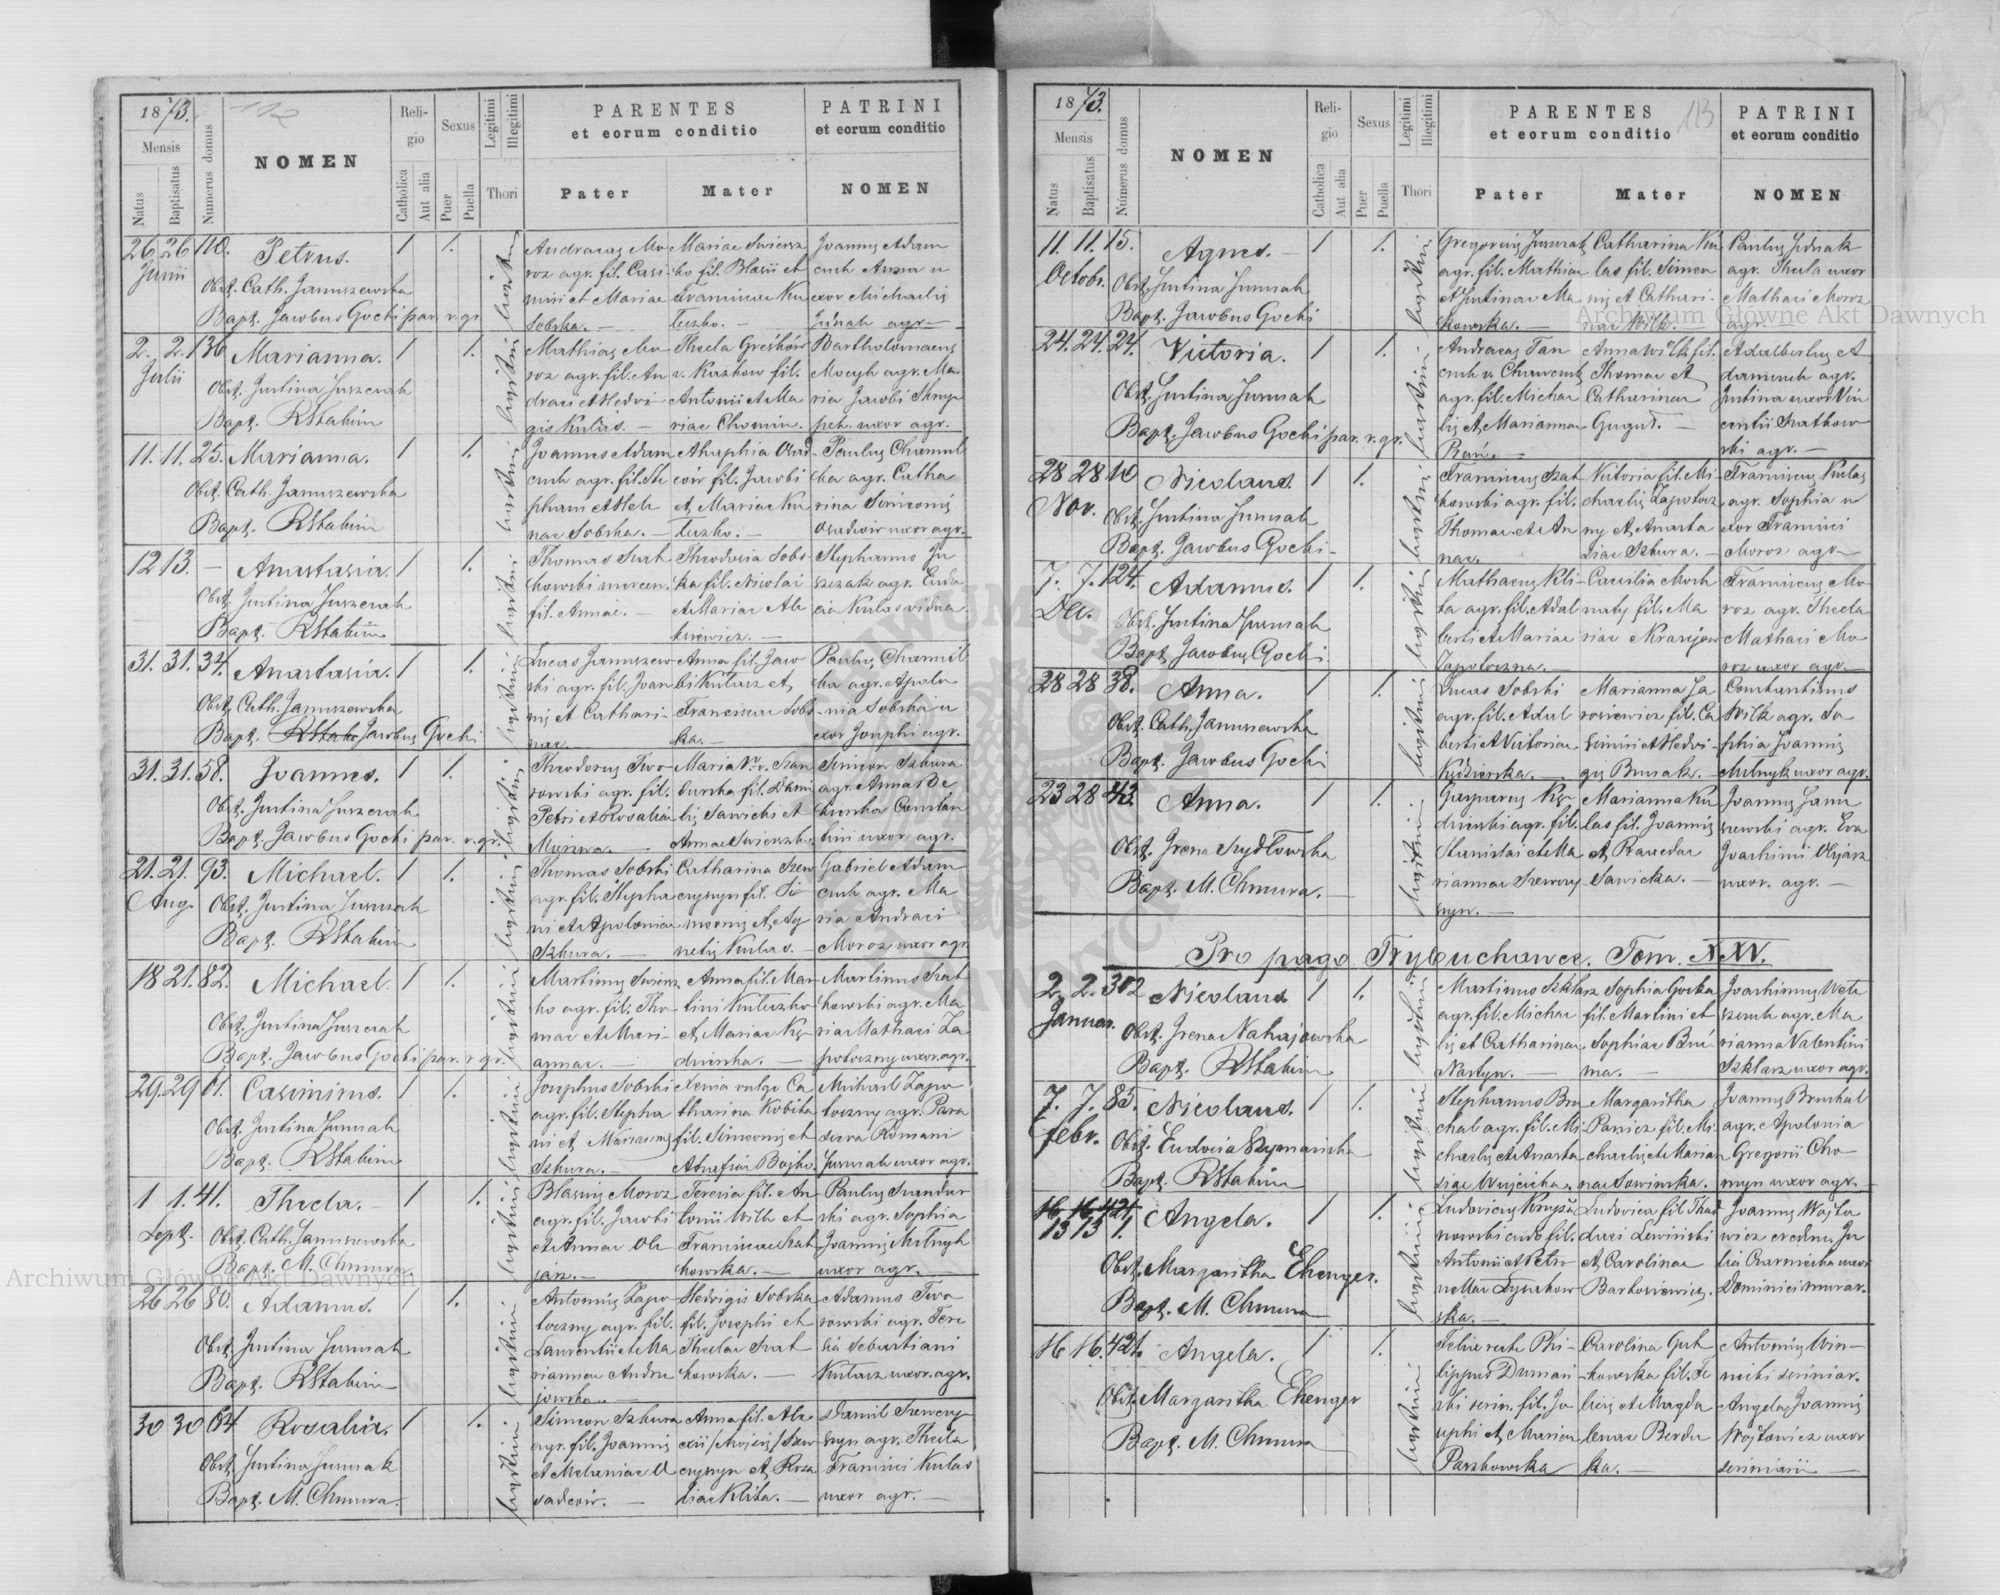 1873.
112
Mensis
Natus
Baptisatus
Numerus domus
NOMEN
Religio
Catholica
Aut alia
Sexus
Puer
Puella
Legitimi
Illegitimi
Thori
PARENTES
et eorum conditio
Pater
Mater
PATRINI
et eorum conditio
NOMEN
26 26 110. Petrus. 1 1.
Junii
Obst. Cath. Januszewska
Bapt. Jacobus Gocki par. r. gr.
legitimi
Andraeas Mo
roz agr. fil. Casi
miri et Mariae
Sobska.
Mariae Swiersz
ko fil. Blasii et
Franciscae Ku
tuzko.
Joannes Adam
cuk Anna u
xor Michaelis
agr.
2. 2. 136 Marianna. 1 1.
Julii
Obst. Justina Juszczak
Bapt. RStabin
legitimi
Mathias Mo
roz agr. fil. An
draei et Hedvi
gis Kulas.
Thecla Greskow
v. Kuzkow fil.
Antonii et Ma
riae Chomin.
Bartholomaeus
agr. Ma
ria Jacobi
uxor agr.
11. 11. 25. Marianna. 1 1.
Obst. Cath. Januszewska
Bapt. RStabin
legitimi
Joannes Adam
cuk agr. fil. Ste
phani et Hele
nae Sobska.
fil. Jacobi
et Mariae Ku
tuzko.
Paulus Chamul
ka agr. Catha
rina Simeonis
uxor agr.
12 13. - Anastasia. 1 1.
Obst. Justina Juszczak
Bapt. RStabin
legitimi
Thomas Szat
kowski
fil. Annae.
Theodosia Sobs
ka fil. Nicolai
et Mariae Ale
ksiewicz.
Stephanus Ju
szczak agr. Eudo
cia Kulas vidua
31. 31. 34. Anastasia. 1 1.
Obst. Cath. Januszewska
Bapt. Jacobus Gocki
legitimi
Lucas Januszew
ski agr. fil. Joan
nis et Cathari
nae.
Anna fil. Jaco
bi Kutasz et
Franciscae Sobs
ka.
Paulus Chamul
ka agr. Apolo
nia Sobska u
xor Josephi agr.
31. 31. 58. Joannes. 1 1.
Obst. Justina Juszczak
Bapt. Jacobus Gocki par. r. gr.
legitimi
Theodorus Two
rowski agr. fil.
Petri et Rosaliae
fil. Dani
lis Sawicki et
Annae Swierszko.
Simeon Szkura
agr. Anna
tini uxor agr.
21. 21. 93. Michael. 1 1.
Aug.
Obst. Justina Juszczak
Bapt. RStabin
legitimi
Thomas Sobski
agr. fil. Stepha
ni et Apoloniae
Szkura.
Catharina Szew
czyszyn fil. Si
meonis et Ag
netis Kulas.
Gabriel Adam
cuk agr. Ma
ria Andraei
Moroz uxor agr.
18 21. 82. Michael. 1 1.
Obst. Justina Juszczak
Bapt. Jacobus Gocki par. r. gr.
legitimi
Martinus Swiersz
ko agr. fil. Tho
mae et Mari
annae.
Anna fil. Mar
tini Kutuzko
et Mariae Kę
dzierska.
Martinus Szat
kowski agr. Ma
ria Mathaei Za
potoczny uxor agr.
29. 29 61. Casimirus. 1 1.
Obst. Justina Juszczak
Bapt. RStabin
legitimi
Josephus Sobski
agr. fil. Stepha
ni et Mariannae
Szkura.
Xenia vulgo Ca
tharina Kobita
fil. Simeonis et
Bojko.
Michael Zapo
toczny agr. Para
sceva Romani
Juszczak uxor agr.
1 1. 41. Thecla. 1 1.
Sept.
Obst. Cath. Januszewska
Bapt. M. Chmura.
legitimi
Blasius Moroz
agr. fil. Jacobi
et Annae Ole
jarz.
Teresia fil. An
tonii Wilk et
Franciscae Szat
kowska.
Paulus
ski agr. Sophia
Joannis Melnyk
uxor agr.
26 26 80. Adamus. 1 1.
Obst. Justina Juszczak
Bapt. RStabin
legitimi
Antonius Zapo
toczny agr. fil.
Laurentii et Ma
riannae Andru
jowska
Hedvigis Sobska
fil. Josephi et
Theclae Szat
kowska.
Adamus Two
rowski agr. Tere
sia Sebastiani
Kutasz uxor agr.
30 30 64 Rosalia. 1 1.
Obst. Justina Juszczak
Bapt. M. Chmura.
legitimi
Simeon Szkura
agr. fil. Joannis
et Melaniae
Anna fil. Ale
xii /Mojsis/ Szew
czyszyn et Rosa
liae Klita.
Daniel Szewczy
szyn agr. Thecla
Francisci Kulas
uxor agr.
1873.
113
Mensis
Natus
Baptisatus
Númerus domus
NOMEN
Religio
Catholica
Aut alia
Sexus
Puer
Puella
Legitimi
Illegitimi
Thori
PARENTES
et eorum conditio
Pater
Mater
PATRINI
et eorum conditio
NOMEN
11. 11. 15. Agnes. 1 1.
Octobr.
Obst. Justina Juszczak
Bapt. Jacobus Gocki
legitimi
Gregorius Juszczak
agr. fil. Mathiae
et Justinae Ma
kowska.
Catharina Ku
las fil. Simeo
nis et Cathari
nae Wilk.
Paulus
agr. Thecla uxor
Mathaei Moroz
agr.
24. 24. 24. Victoria. 1 1.
Obst. Justina Juszczak
Bapt. Jacobus Gocki par. r. gr.
legitimi
Andraeas Tan
cuk v.
agr. fil. Michae
lis et Mariannae
Anna Wilk fil.
Thomae et
Catharinae
Adalbertus A
damcuk agr.
Justina uxor Vin
centii Szatkow
ski agr.
28 28 10 Nicolaus. 1 1.
Nov.
Obst. Justina Juszczak
Bapt. Jacobus Gocki
legitimi
Franciscus Szat
kowski agr. fil.
Thomae et An
nae.
Victoria fil. Mi
chaelis Zapotocz
ny et Anasta
siae Szkura.
Franciscus Kulas
agr. Sophia u
xor Francisci
Moroz agr.
7. 7. 124. Adamus. 1 1.
Dec.
Obst. Justina Juszczak
Bapt. Jacobus Gocki
legitimi
Mathaeus Kli
ta agr. fil. Adal
berti et Mariae
Zapotoczna.
Caecilia Moch
naty fil. Ma
riae
Franciscus Mo
roz agr. Thecla
Mathaei Mo
roz uxor agr.
28 28 38. Anna. 1 1.
Obst. Cath. Januszewska
Bapt. Jacobus Gocki
legitimi
Lucas Sobski
agr. fil. Adal
berti et Victoriae
Kędzierska.
Marianna Ja
rosiewicz fil. Ca
simiri et Hedvi
gis Brusak.
Constantinus
Wilk agr. So
phia Joannis
Melnyk uxor agr.
23 28 43. Anna. 1 1.
Obst. Irena Szydłowska
Bapt. M. Chmura.
legitimi
Gasparus Kę
dzierski agr. fil.
Stanislai et Ma
riannae Szewczy
szyn.
Marianna Ku
las fil. Joannis
et
Sawicka.
Joannes Janu
szewski agr. Eva
Joachimi Olejarz
uxor. agr.
Pro pago Trybuchowce. Tom. XXV.
2. 2. 302 Nicolaus 1 1.
Januar.
Obst. Irena Nahajowska
Bapt. RStabin
legitimi
Martinus Szklarz
agr. fil. Michae
lis et Catharinae
Nastyn.
Sophia Gocka
fil. Martini et
Sophiae
Joachimus
agr. Ma
rianna Valentini
Szklarz uxor agr.
7. 7. 85. Nicolaus. 1 1.
Febr.
Obst. Eudocia Szymanska
Bapt. RStabin
legitimi
Stephanus Bru
chal agr. fil. Mi
chaelis et Anasta
siae Wujcicka.
Margaritha
fil. Mi
chaelis et Marian
nae Sowinska.
Joannes Bruchal
agr. Apolonia
Gregorii Cho
myn uxor agr.
16 16 421.
13 13 1. Angela. 1 1.
Obst. Margaritha Ehenger.
Bapt. M. Chmura
legitimi
Ludovicus
nowski fil.
Antonii et Petro
nellae
ska.
Ludovica fil. Thad
daei Lewinski
et Carolinae
Bartosiewicz.
Joannes Wojto
wicz Ju
lia Czarniecka uxor
Dominici murar.
16 16. 421. Angela. 1 1.
Obst. Margaritha Ehenger
Bapt. M. Chmura
legitimi
Felix recte Phi
lippus Dunaj
ski fil. Jo
sephi et Mariae
Paszkowska
Carolina Gut
kowska fil. Fe
licis et Magda
lenae Berdec
ka.
Antonius Win
nicki scriniar.
Angela Joannis
Wojtowicz uxor
scriniarii
Archiwum Główne Akt Dawnych
Archiwum Główne Akt Dawnych